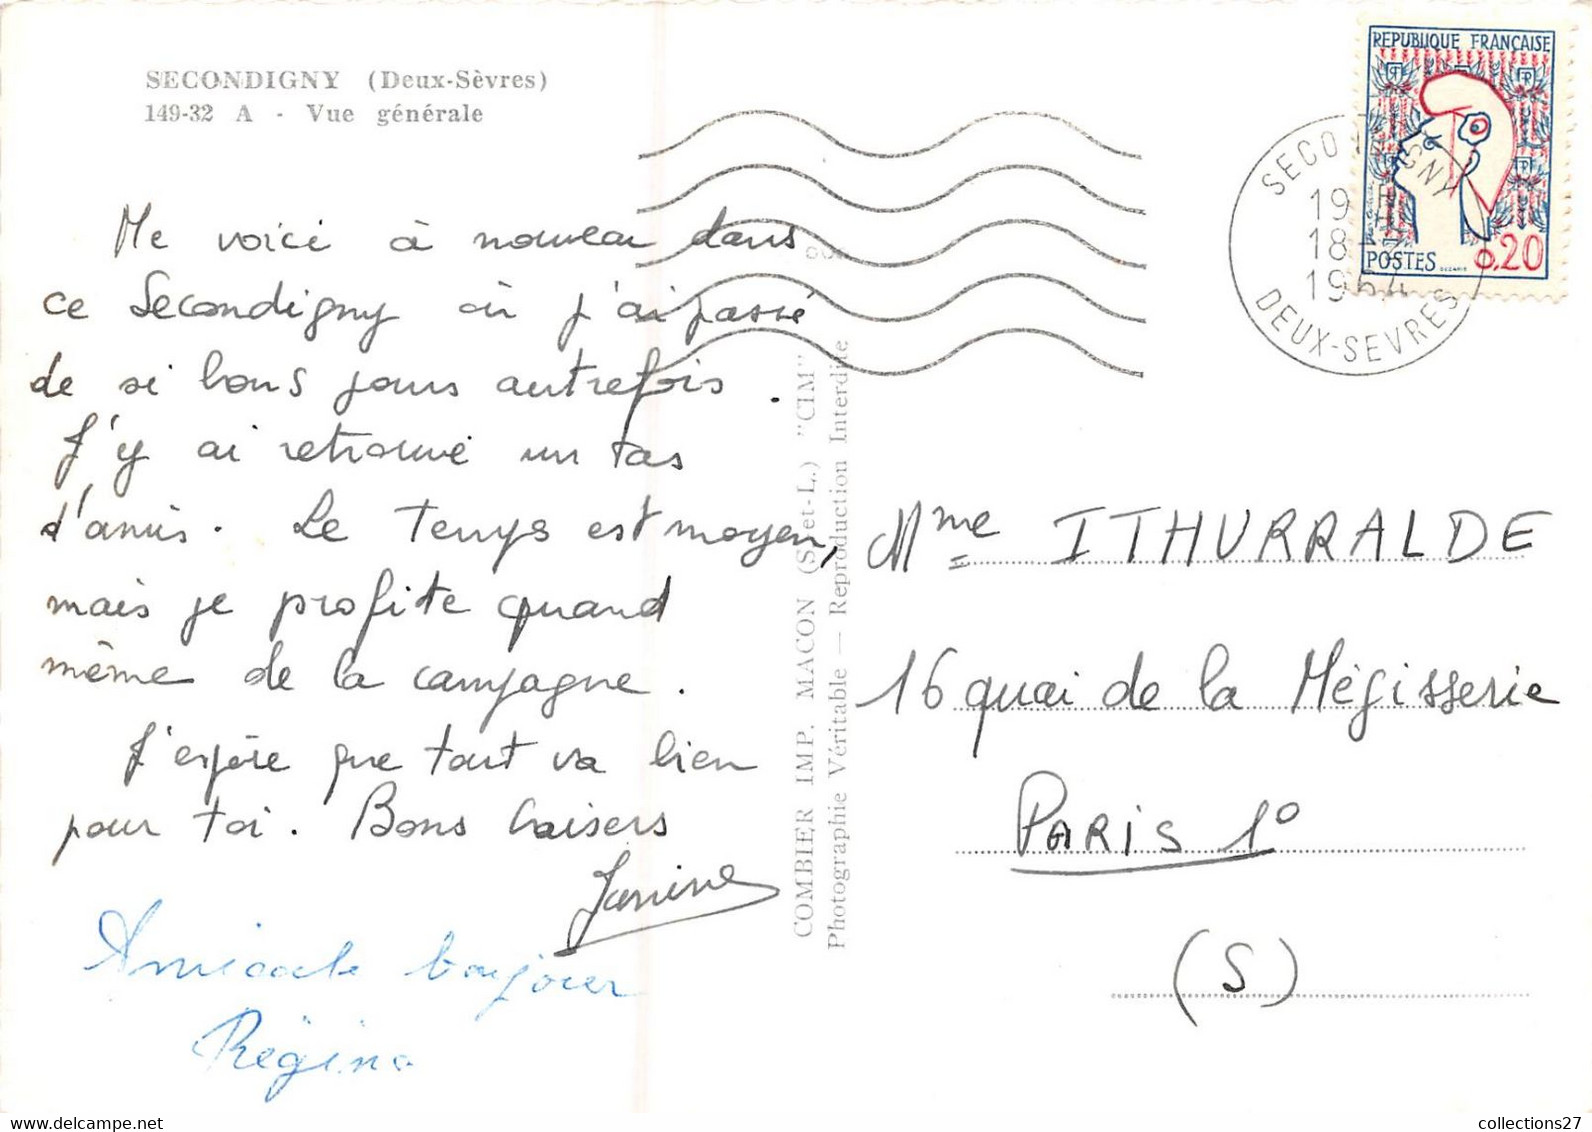 SECONDIGNY (Deux-Sèvres)
149-32 A - Vue générale
Me voici à nouveau dans
ce Secondigny où j'ai passé
de si bons jours autrefois.
J'y ai retrouvé un tas
d'amis. Le temps est moyen,
mais je profite quand
même de la campagne.
J'espère que tout va bien
pour toi. Bons baisers
Janine
Amicale bonjour
Régine
COMBIER IMP. MACON (S.-et-L.) "CIM"
Photographie Véritable — Reproduction Interdite
REPUBLIQUE FRANÇAISE
POSTES 0,20
SECONDIGNY
19 H
18-
1964
DEUX-SEVRES
Mme ITHURRALDE
16 quai de la Mégisserie
PARIS 1°
(S)
collections27